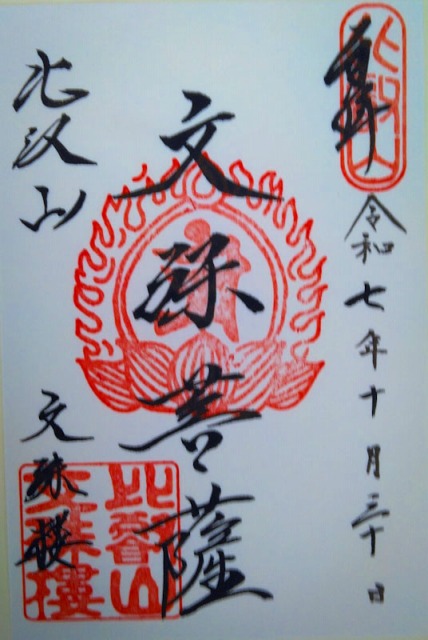 奉拝
比叡山
令和七年十月三十日
文殊菩薩
比叡山
文殊楼
比叡山
文殊樓